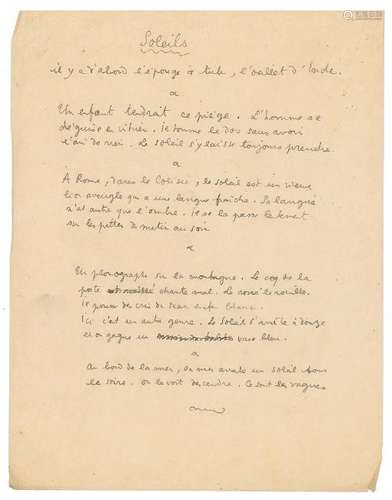 Soleils
il y a d'abord l'éponge à tub, l'œillet d'Inde.
Un enfant tendrait ce piège. L'homme se
déguise en vitrier. Je donne le dos sans avoir
l'air de rien. Le soleil s'y laisse toujours prendre.
A Rome, dans le Colisée, le soleil est un vieux
lion aveugle qui a une langue fraîche. Sa langue
n'est autre que l'ombre. Il se la passe lentement
sur les pattes du matin au soir
Un phonographe sur la montagne. Le coq de la
porte chante mal. La rosée le rouille.
Il pousse des cris de
Ici c'est un autre genre. Le soleil s'arrête à douze
et on gagne un vase bleu.
Au bord de la mer, on mer avale un soleil tous
les soirs. On le voit descendre. Ce sont les vagues